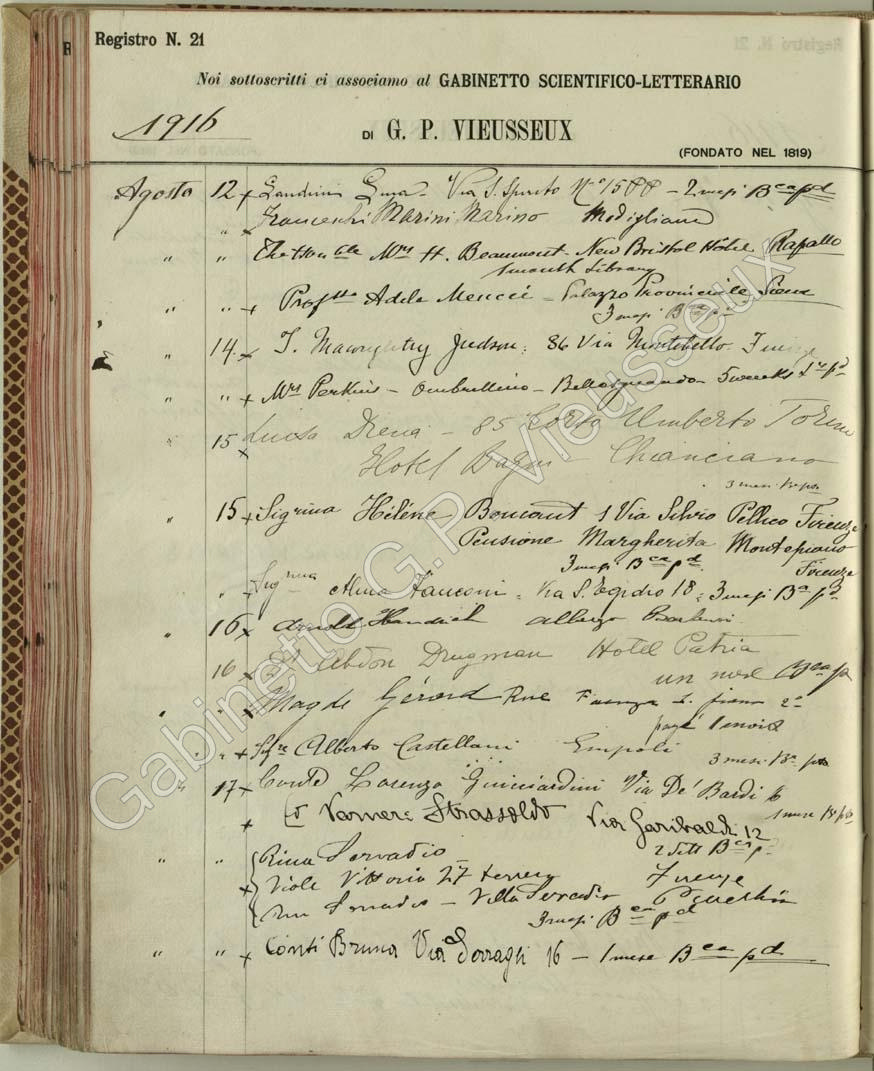 Registro N. 21
Noi sottoscritti ci associamo al GABINETTO SCIENTIFICO-LETTERARIO
1916
DI G. P. VIEUSSEUX
(FONDATO NEL 1819)
Agosto 12 x Landini Via S. Spirito 2 mesi Bca pd
" x Franceschi Marini Marino Modigliana
" " Mrs H. Beaumont - New Bristol Hôtel Rapallo
1 month Library
" " x Profssa Adele Meucci - Palazzo Provinciale Siena
3 mesi Bca pd
" 14. x Judson : 86 Via Montebello Firenze
" " x Mrs Perkins - Ombrellino - Bellosguardo - 5 weeks
" 15 x Luisa Diena - 85 Corso Umberto Torino
Hotel Bagni - Chianciano
3 mesi
" 15 x Sigrina Hélène 1 Via Silvio Pellico Firenze
Pensione Margherita Montepiano
3 mesi Bca pd. Firenze
" " Sigrina Alma Fanconi - Via S. Egidio 18 - 3 mesi Ba pd
" 16 x Arnold albergo
16 x Dr Abdon Drugman Hotel Patria
un mese Bca p
" " x Magde Gérard Rue Faenza
payé 1 mois
" " x Alberto Castellani Empoli
3 mesi Ba
" 17 x Conte Lorenzo Guicciardini Via De' Bardi
1 mese
x Strassoldo Via Garibaldi 12
" " Rina Servadio 2 Bca p.
x Viale Vittoria 27 terreno Firenze
Servadio - Villa Servadio
3 mesi Bca pd
" " x Conti Bruna Via Serragli 16 - 1 mese Bca pd
Gabinetto G.P. Vieusseux